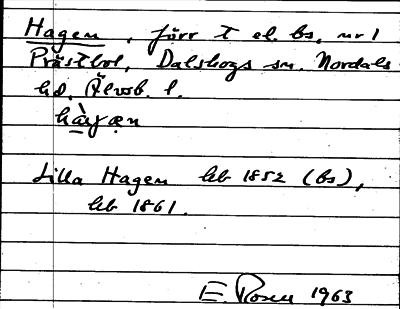 Hagen, förr t el. bs, nr 1
Prästbol, Dalskogs sn. Nordals
hd. Älvsb. l.
Lilla Hagen hb 1852 (bs),
hb 1861.
E. Rosen 1963